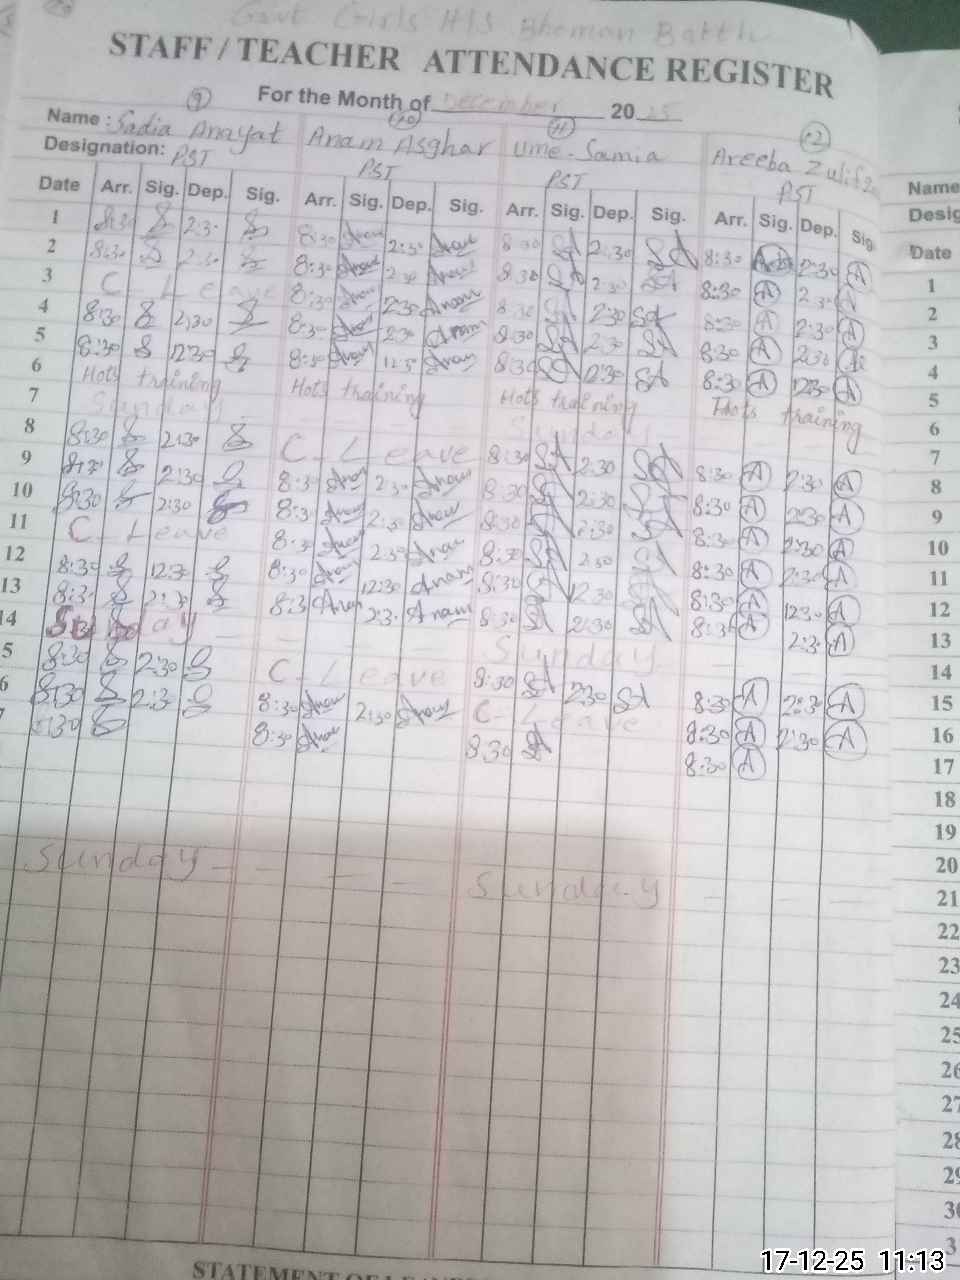 Govt Girls H/S Bhoman Batth
STAFF / TEACHER ATTENDANCE REGISTER
For the Month of December 2025
9 10 11 12
Name : Sadia Anayat Anam Asghar Ume-Samia Areeba
Designation: PST PST PST PST
Date Arr. Sig. Dep. Sig. Arr. Sig. Dep. Sig. Arr. Sig. Dep. Sig. Arr. Sig. Dep. Sig.
1 8:30 2:30 8:30 Anam 2:30 Anam 8:30 SA 2:30 SA 8:30 2:30 A
2 8:30 2:30 8:30 Anam 2:30 Anam 8:30 SA 2:30 SA 8:30 A 2:30 A
3 C Leave 8:30 Anam 2:30 Anam 8:30 SA 2:30 SA 8:30 A 2:30 A
4 8:30 2:30 8:30 Anam 2:30 Anam 8:30 SA 2:30 SA 8:30 A 2:30 A
5 8:30 12:30 8:30 Anam 12:30 Anam 8:30 SA 12:30 SA 8:30 A 12:30 A
6 Hots training Hots training Hots training Hots training
7 Sunday Sunday
8 8:30 2:30 C_Leave 8:30 SA 2:30 SA 8:30 A 2:30 A
9 8:30 2:30 8:30 Anam 2:30 Anam 8:30 SA 2:30 SA 8:30 A 2:30 A
10 8:30 2:30 8:30 Anam 2:30 Anam 8:30 SA 2:30 SA 8:30 A 2:30 A
11 C_Leave 8:30 Anam 2:30 Anam 8:30 SA 2:30 SA 8:30 A 2:30 A
12 8:30 12:30 8:30 Anam 12:30 Anam 8:30 SA 12:30 SA 8:30 A 12:30 A
13 8:30 2:30 8:30 Anam 2:30 Anam 8:30 SA 2:30 SA 8:30 A 2:30 A
14 Sunday Sunday
5 8:30 2:30 C_Leave 8:30 SA 2:30 SA 8:30 A 2:30 A
6 8:30 2:30 8:30 Anam 2:30 Anam C-Leave 8:30 A 2:30 A
8:30 8:30 Anam 8:30 SA 8:30 A
Sunday Sunday
Name
Desig
Date
1
2
3
4
5
6
7
8
9
10
11
12
13
14
15
16
17
18
19
20
21
22
23
24
25
26
27
28
29
30
3
STATEMENT OF LEAVE
17-12-25 11:13